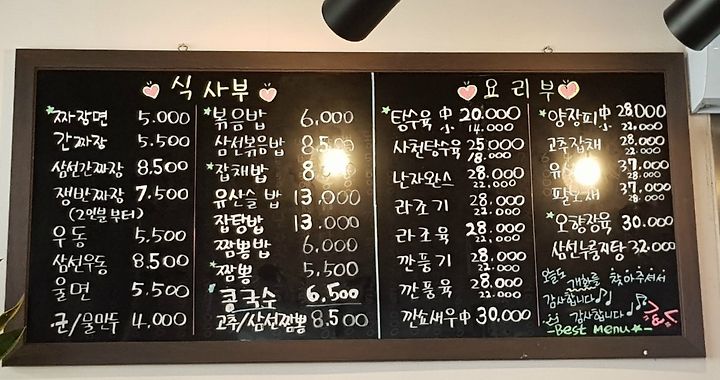 식사부
*짜장면 5.000
간짜장 5.500
삼선간짜장 8.500
쟁반짜장 7.500
(2인분부터)
우동 5.500
삼선우동 8.500
울면 5.500
군/물만두 4.000
*볶음밥 6.000
삼선볶음밥 8.500
*잡채밥
유산슬밥 13.000
잡탕밥 13.000
짬뽕밥 6.000
*짬뽕 5.500
*콩국수 6.500
고추/삼선짬뽕 8.500
요리부
*탕수육 中 20.000
小 14.000
사천탕수육 25.000
18.000
난자완스 28.000
22.000
라조기 28.000
22.000
라조육 28.000
22.000
깐풍기 28.000
22.000
깐풍육 28.000
22.000
깐쇼새우 中 30.000
*양장피 中 28.000
小 22.000
고추잡채 28.000
22.000
37.000
28.000
팔보채 37.000
28.000
*오향장육 30.000
삼선누룽지탕 32.000
오늘도 개화를 찾아주셔서
감사합니다♪♪
감사합니다♪♫
-Best Menu*-